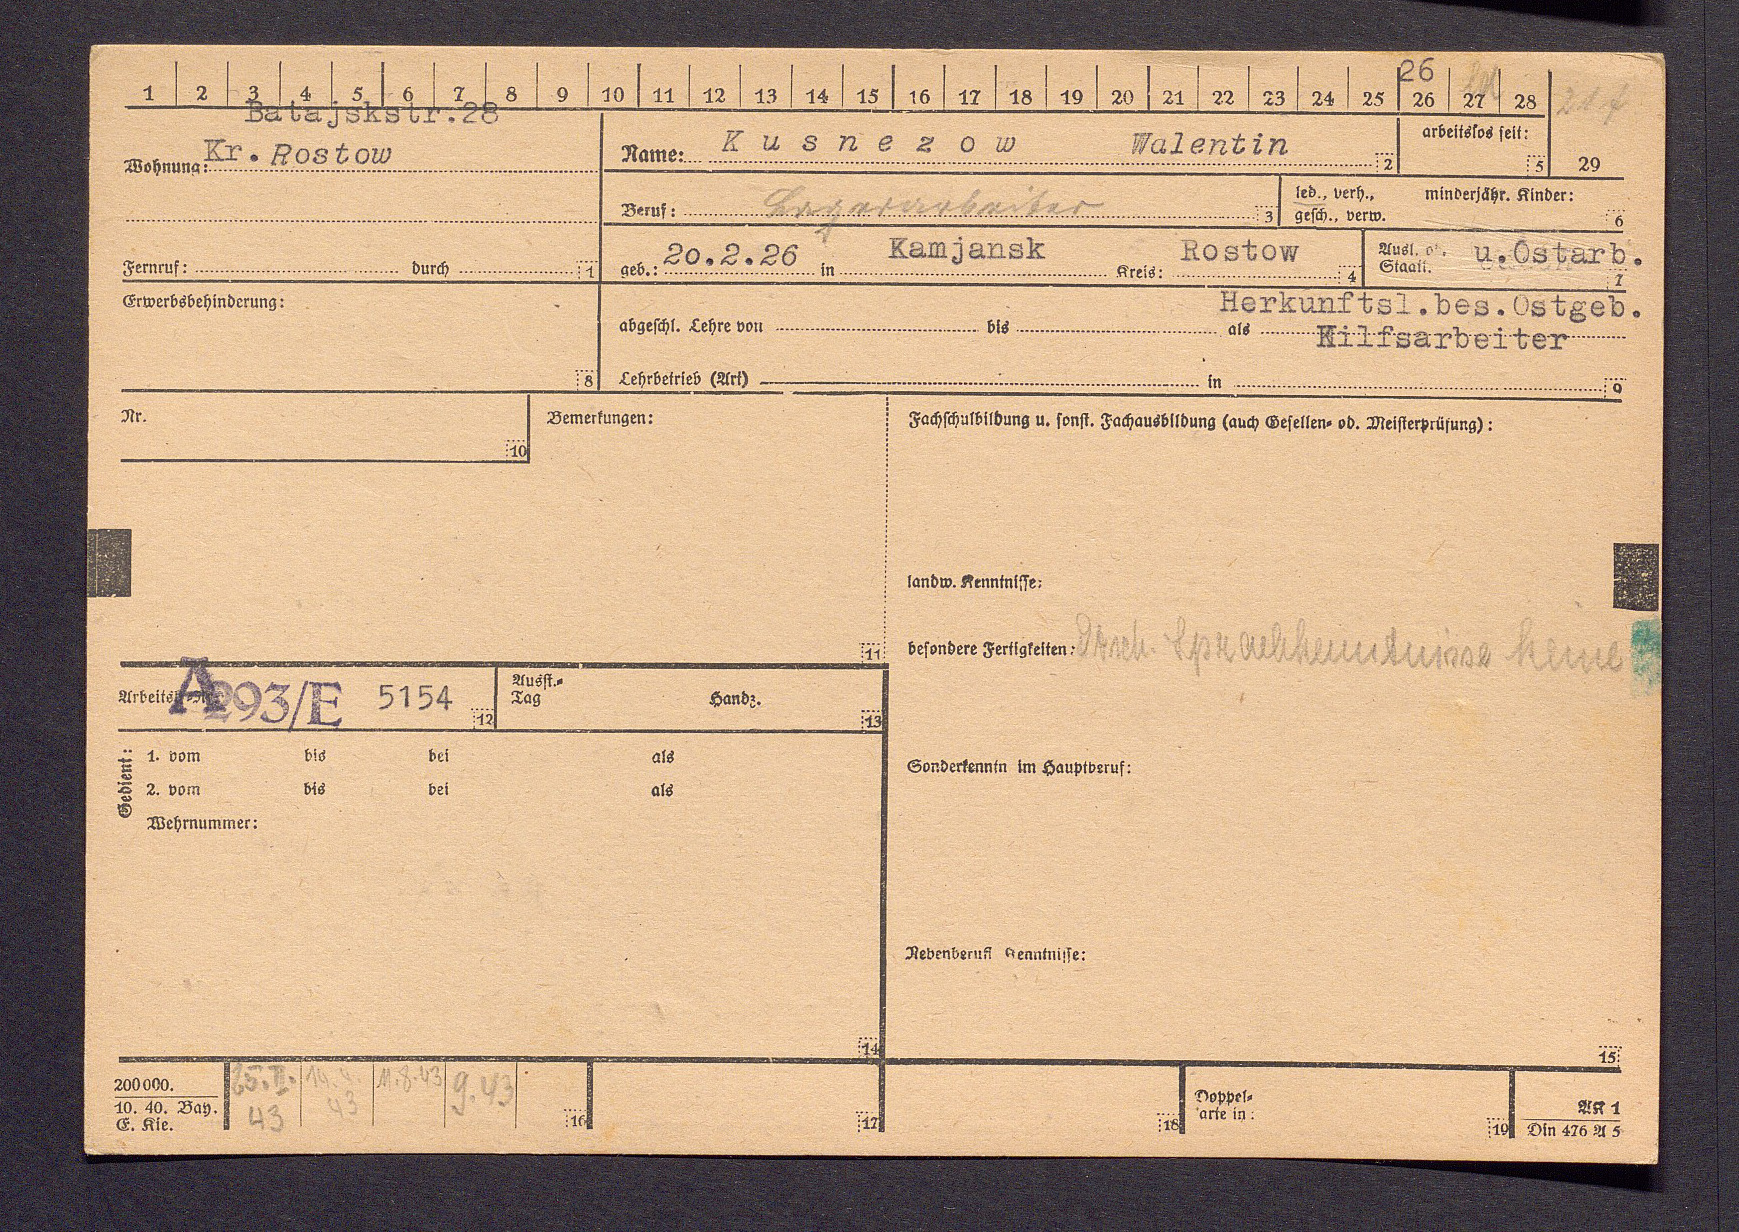 26
1 2 3 4 5 6 7 8 9 10 11 12 13 14 15 16 17 18 19 20 21 22 23 24 25 26 27 28
Batajskstr.28
Wohnung: Kr. Rostow
Name: Kusnezow Walentin 2
arbeitslos seit: 5
29
Beruf: Lagerarbeiter 3
led., verh., gesch., verw.
minderjähr. Kinder: 6
Fernruf: durch 1
geb.: 20.2.26 in Kamjansk Kreis: Rostow 4
Ausl. od. Staatl. u.Ostarb. 7
Erwerbsbehinderung: 8
Herkunftsl.bes.Ostgeb.
abgeschl. Lehre von bis als Hilfsarbeiter
Lehrbetrieb (Art) in 9
Nr. 10
Bemerkungen: 11
Fachschulbildung u. sonst. Fachausbildung (auch Gesellen- od. Meisterprüfung):
landw. Kenntnisse:
besondere Fertigkeiten: Dtsch. Sprachkenntnisse keine
Arbeitsb.-Nr. A293/E 5154 12
Ausst.-Tag Handz. 13
Gedient:
1. vom bis bei als
2. vom bis bei als
Wehrnummer:
14
Sonderkenntn im Hauptberuf:
Nebenberufl Kenntnisse:
15
200000.
10. 40. Bay.
E. Kie.
25.II. 43
14.4. 43
11.8.43
9.43
16
17
18
Doppelkarte in: 19
AK 1
Din 476 A 5